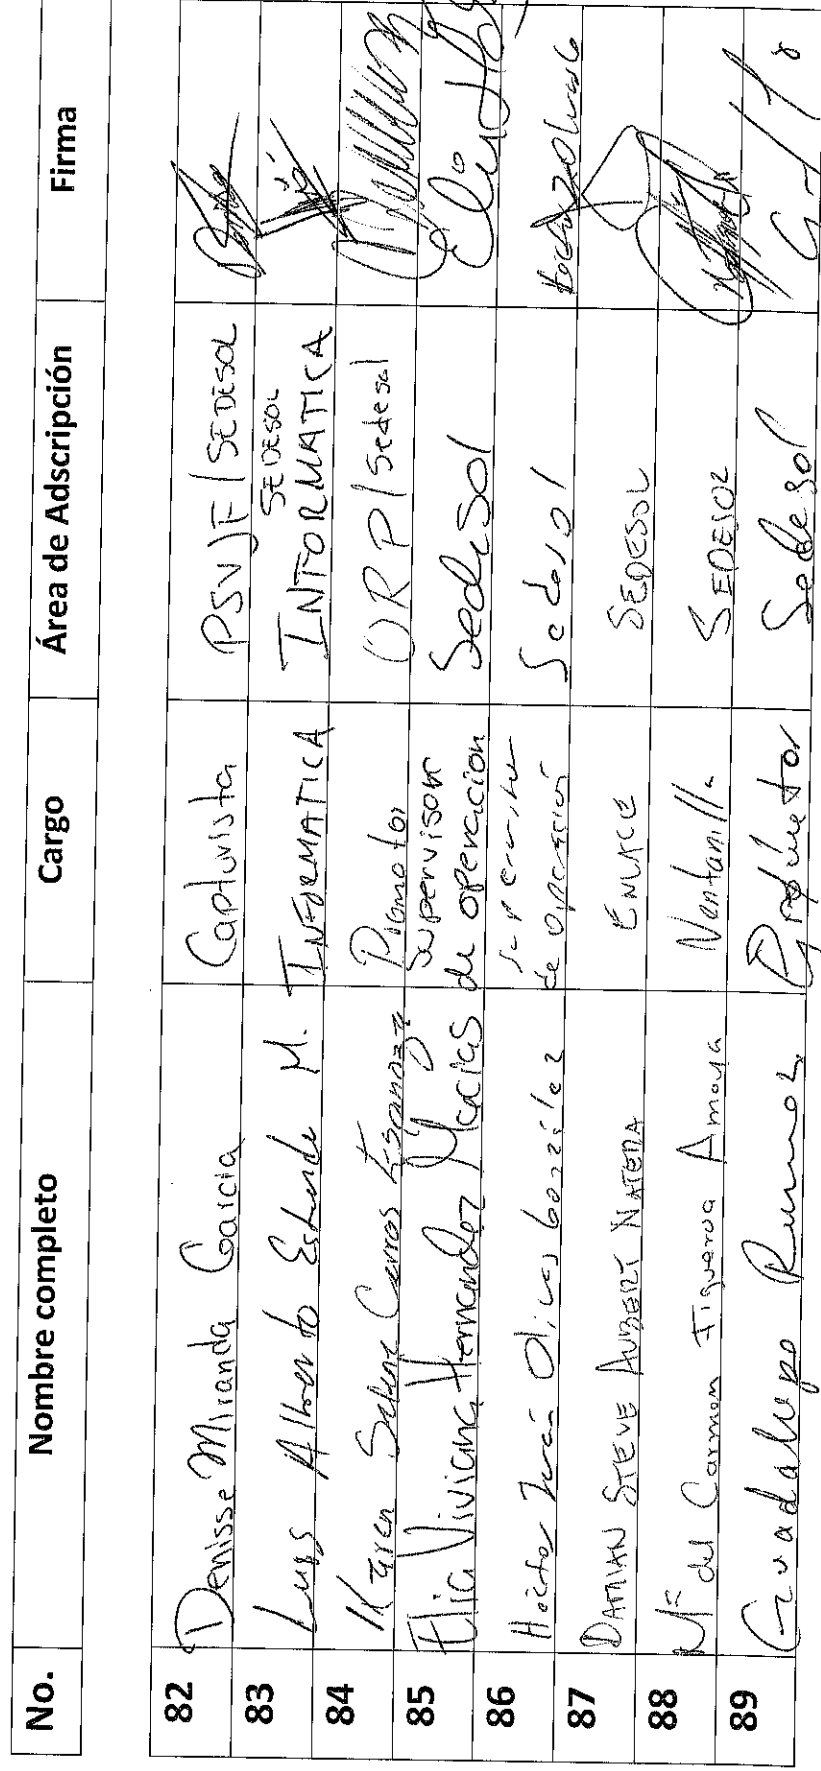 No. Nombre completo Cargo Área de Adscripción Firma
82 Denisse Miranda Garcia Capturista PSVJF / SEDESOL
83 Luis Alberto M. INFORMATICA SEDESOL INFORMATICA
84 Karen Selene Cerros Esparza Promotor ORP / Sedesol
85 Elia Viviana Hernandez Macias Supervisor de operacion Sedesol
86 Héctor Iván Olivas González Supervisor de operación Sedesol
87 DAMIAN STEVE AUBERT NATERA ENLACE SEDESOL
88 Mª del Carmen Figueroa Amaya Ventanilla SEDESOL
89 Guadalupe Sedesol